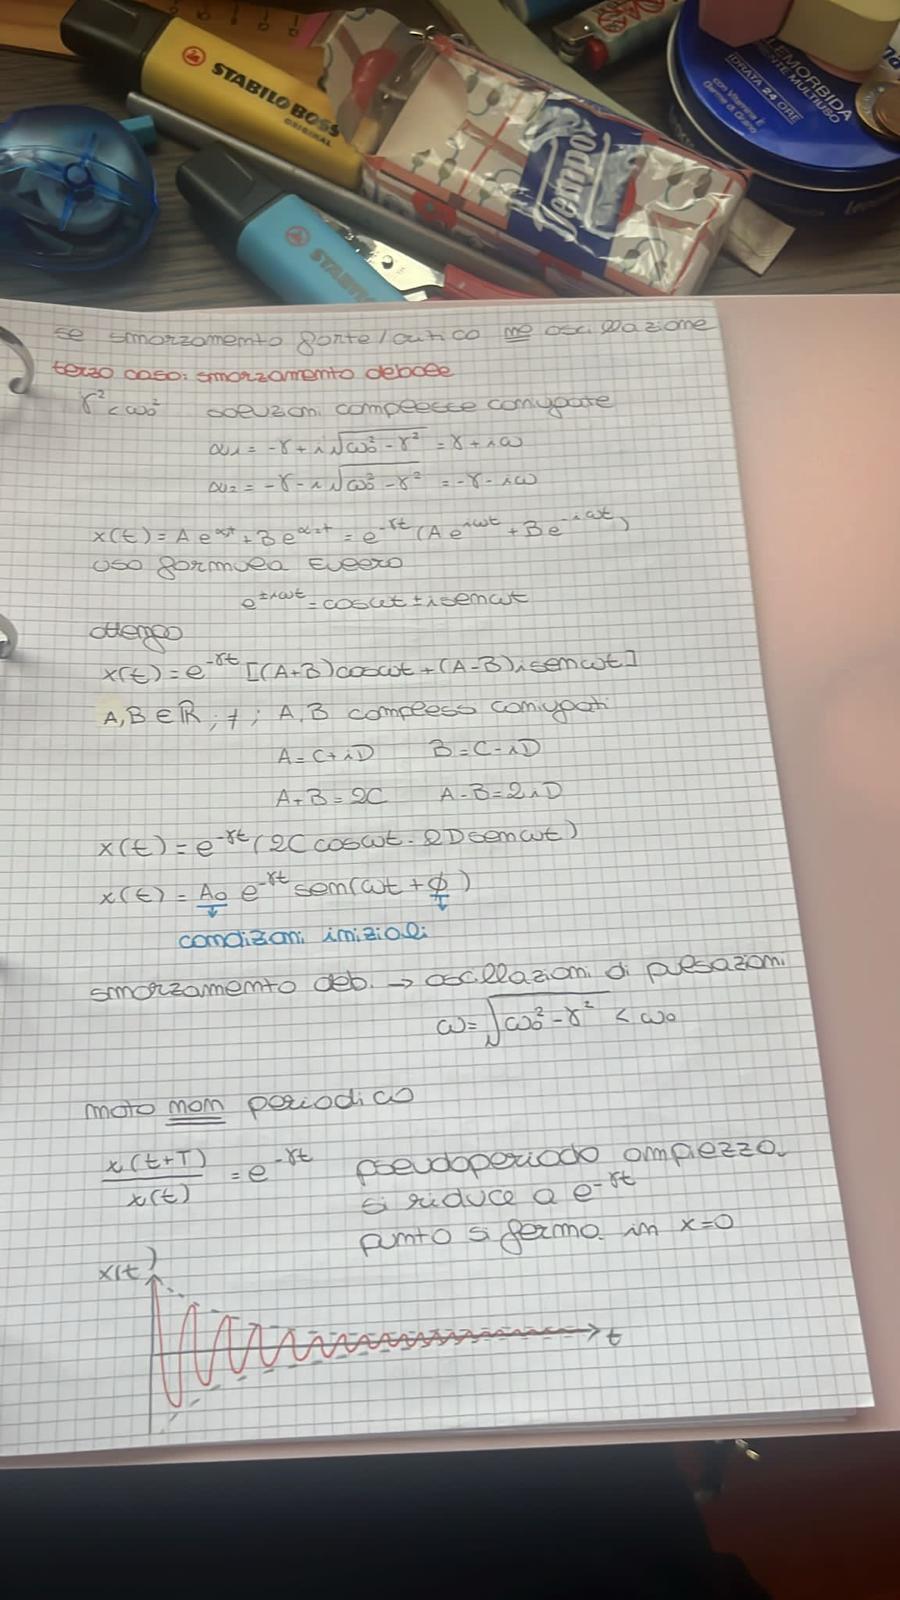 STABILO BOSS
ORIGINAL
STAB
Tempo
MORBIDA
IDRATA 24 ORE
con Vitamina E
se smorzamento forte/critico no oscillazione
terzo caso: smorzamento debole
γ² < ω₀² soluzioni complesse coniugate
α₁ = -γ + i√(ω₀² - γ²) = γ + iω
α₂ = -γ - i√(ω₀² - γ²) = -γ - iω
x(t) = A e^α₁t + B e^α₂t = e^-γt (A e^iωt + B e^-iωt)
uso formula Eulero
e^±iωt = cosωt ± i senωt
ottengo
x(t) = e^-γt [(A+B)cosωt + (A-B)i senωt]
A,B ∈ ℝ, ≠; A,B complessi coniugati
A = C + iD B = C - iD
A+B = 2C A-B = 2iD
x(t) = e^-γt (2C cosωt - 2D senωt)
x(t) = A₀ e^-γt sen(ωt + ϕ)
condizioni iniziali
smorzamento deb. → oscillazioni di pulsazioni
ω = √(ω₀² - γ²) < ω₀
moto non periodico
x(t+T)/x(t) = e^-γt pseudoperiodo ampiezza
si riduce a e^-γt
punto si ferma in x=0
x(t)
t